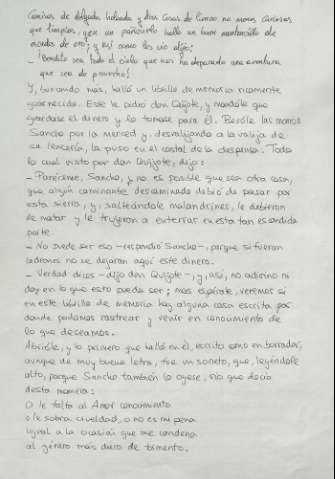 camisas de delgada holanda y otras cosas de lienzo no menos curiosas
que limpias, y en un pañizuelo halló un buen montoncillo de
escudos de oro; y así como los vio dijo:
¡Bendito sea todo el cielo que nos ha deparado una aventura
que sea de provecho!
Y, buscando más, halló un librillo de memoria ricamente
guarnecido. Este le pidió don Quijote, y mandóle que
guardase el dinero y lo tomase para él. Besóle las manos
Sancho por la merced y, desvalijando a la valija de
su lencería, la puso en el costal de la despensa. Todo
lo cual visto por don Quijote, dijo:
- Paréceme, Sancho, y no es posible que sea otra cosa,
que algún caminante descaminado debió de pasar por
esta sierra, y, salteándole malandrines, le debieron
de matar y le trujeron a enterrar en esta tan escondida
parte.
- No puede ser eso -respondió Sancho-, porque si fueran
ladrones no se dejaran aquí este dinero.
- Verdad dices -dijo don Quijote-, y, así, no adivino ni
doy en lo que esto pueda ser; mas espérate, veremos si
en este librillo de memoria hay alguna cosa escrita por
donde podamos rastrear y venir en conocimiento de
lo que deseamos.
Abrióle, y lo primero que halló en él, escrito como en borrador,
aunque de muy buena letra, fue un soneto, que, leyéndole
alto, porque Sancho también lo oyese, vio que decía
desta manera:
O le falta al Amor conocimiento
o le sobra crueldad, o no es mi pena
igual a la ocasión que me condena
al género más duro de tormento.